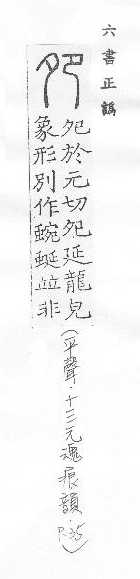 六書正譌
夗
夗於元切夗延龍皃
象形別作蜿蜒竝非
(平聲．十三元魂痕韻．P.35)